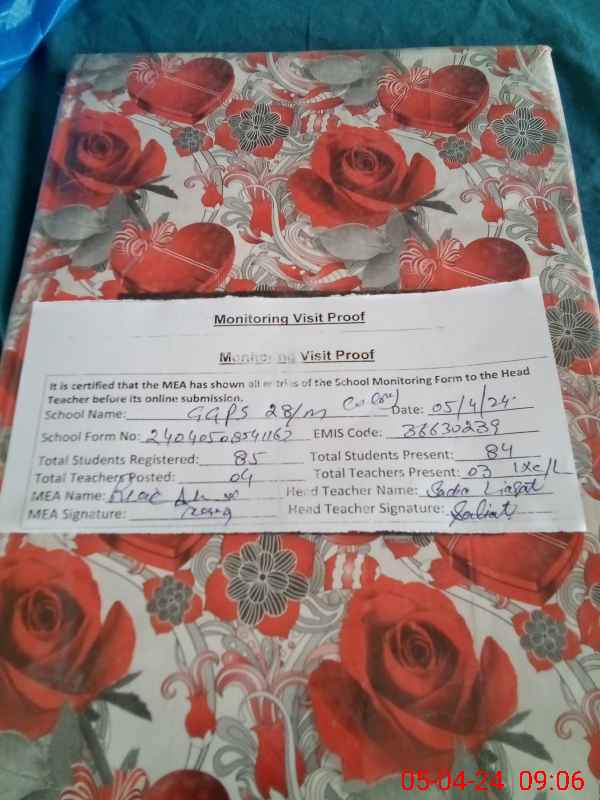 Monitoring Visit Proof
Monitoring Visit Proof
It is certified that the MEA has shown all entries of the School Monitoring Form to the Head
Teacher before its online submission.
School Name: GGPS 28/m Colony Date: 05/4/24
School Form No: 24040508541162 EMIS Code: 38630239
Total Students Registered: 85 Total Students Present: 84
Total Teachers Posted: 04 Total Teachers Present: 03 1xc/L
MEA Name: Head Teacher Name: Sadia Liaqat
MEA Signature: Head Teacher Signature:
05-04-24 09:06